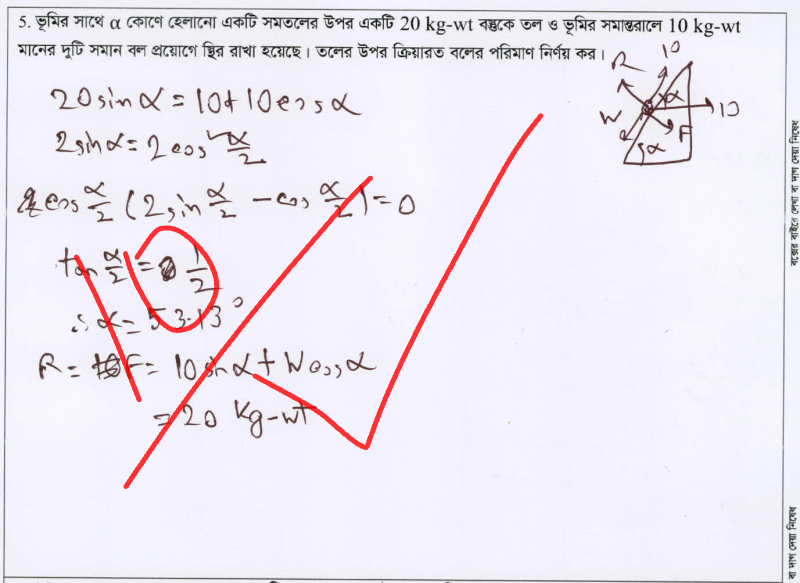 5. ভূমির সাথে α কোণে হেলানো একটি সমতলের উপর একটি 20 kg-wt বস্তুকে তল ও ভূমির সমান্তরালে 10 kg-wt
মানের দুটি সমান বল প্রয়োগে স্থির রাখা হয়েছে। তলের উপর ক্রিয়ারত বলের পরিমাণ নির্ণয় কর।
10
R
α
10
W
F
α
20 sin α = 10 + 10 cos α
2 sin α = 2 cos² α/2
2 cos α/2 (2 sin α/2 - cos α/2) = 0
tan α/2 = 1/2
∴ α = 53.13°
R = F = 10 sin α + W cos α
= 20 kg-wt
বক্সের বাইরে লেখা বা দাগ দেয়া নিষেধ
বা দাগ দেয়া নিষেধ